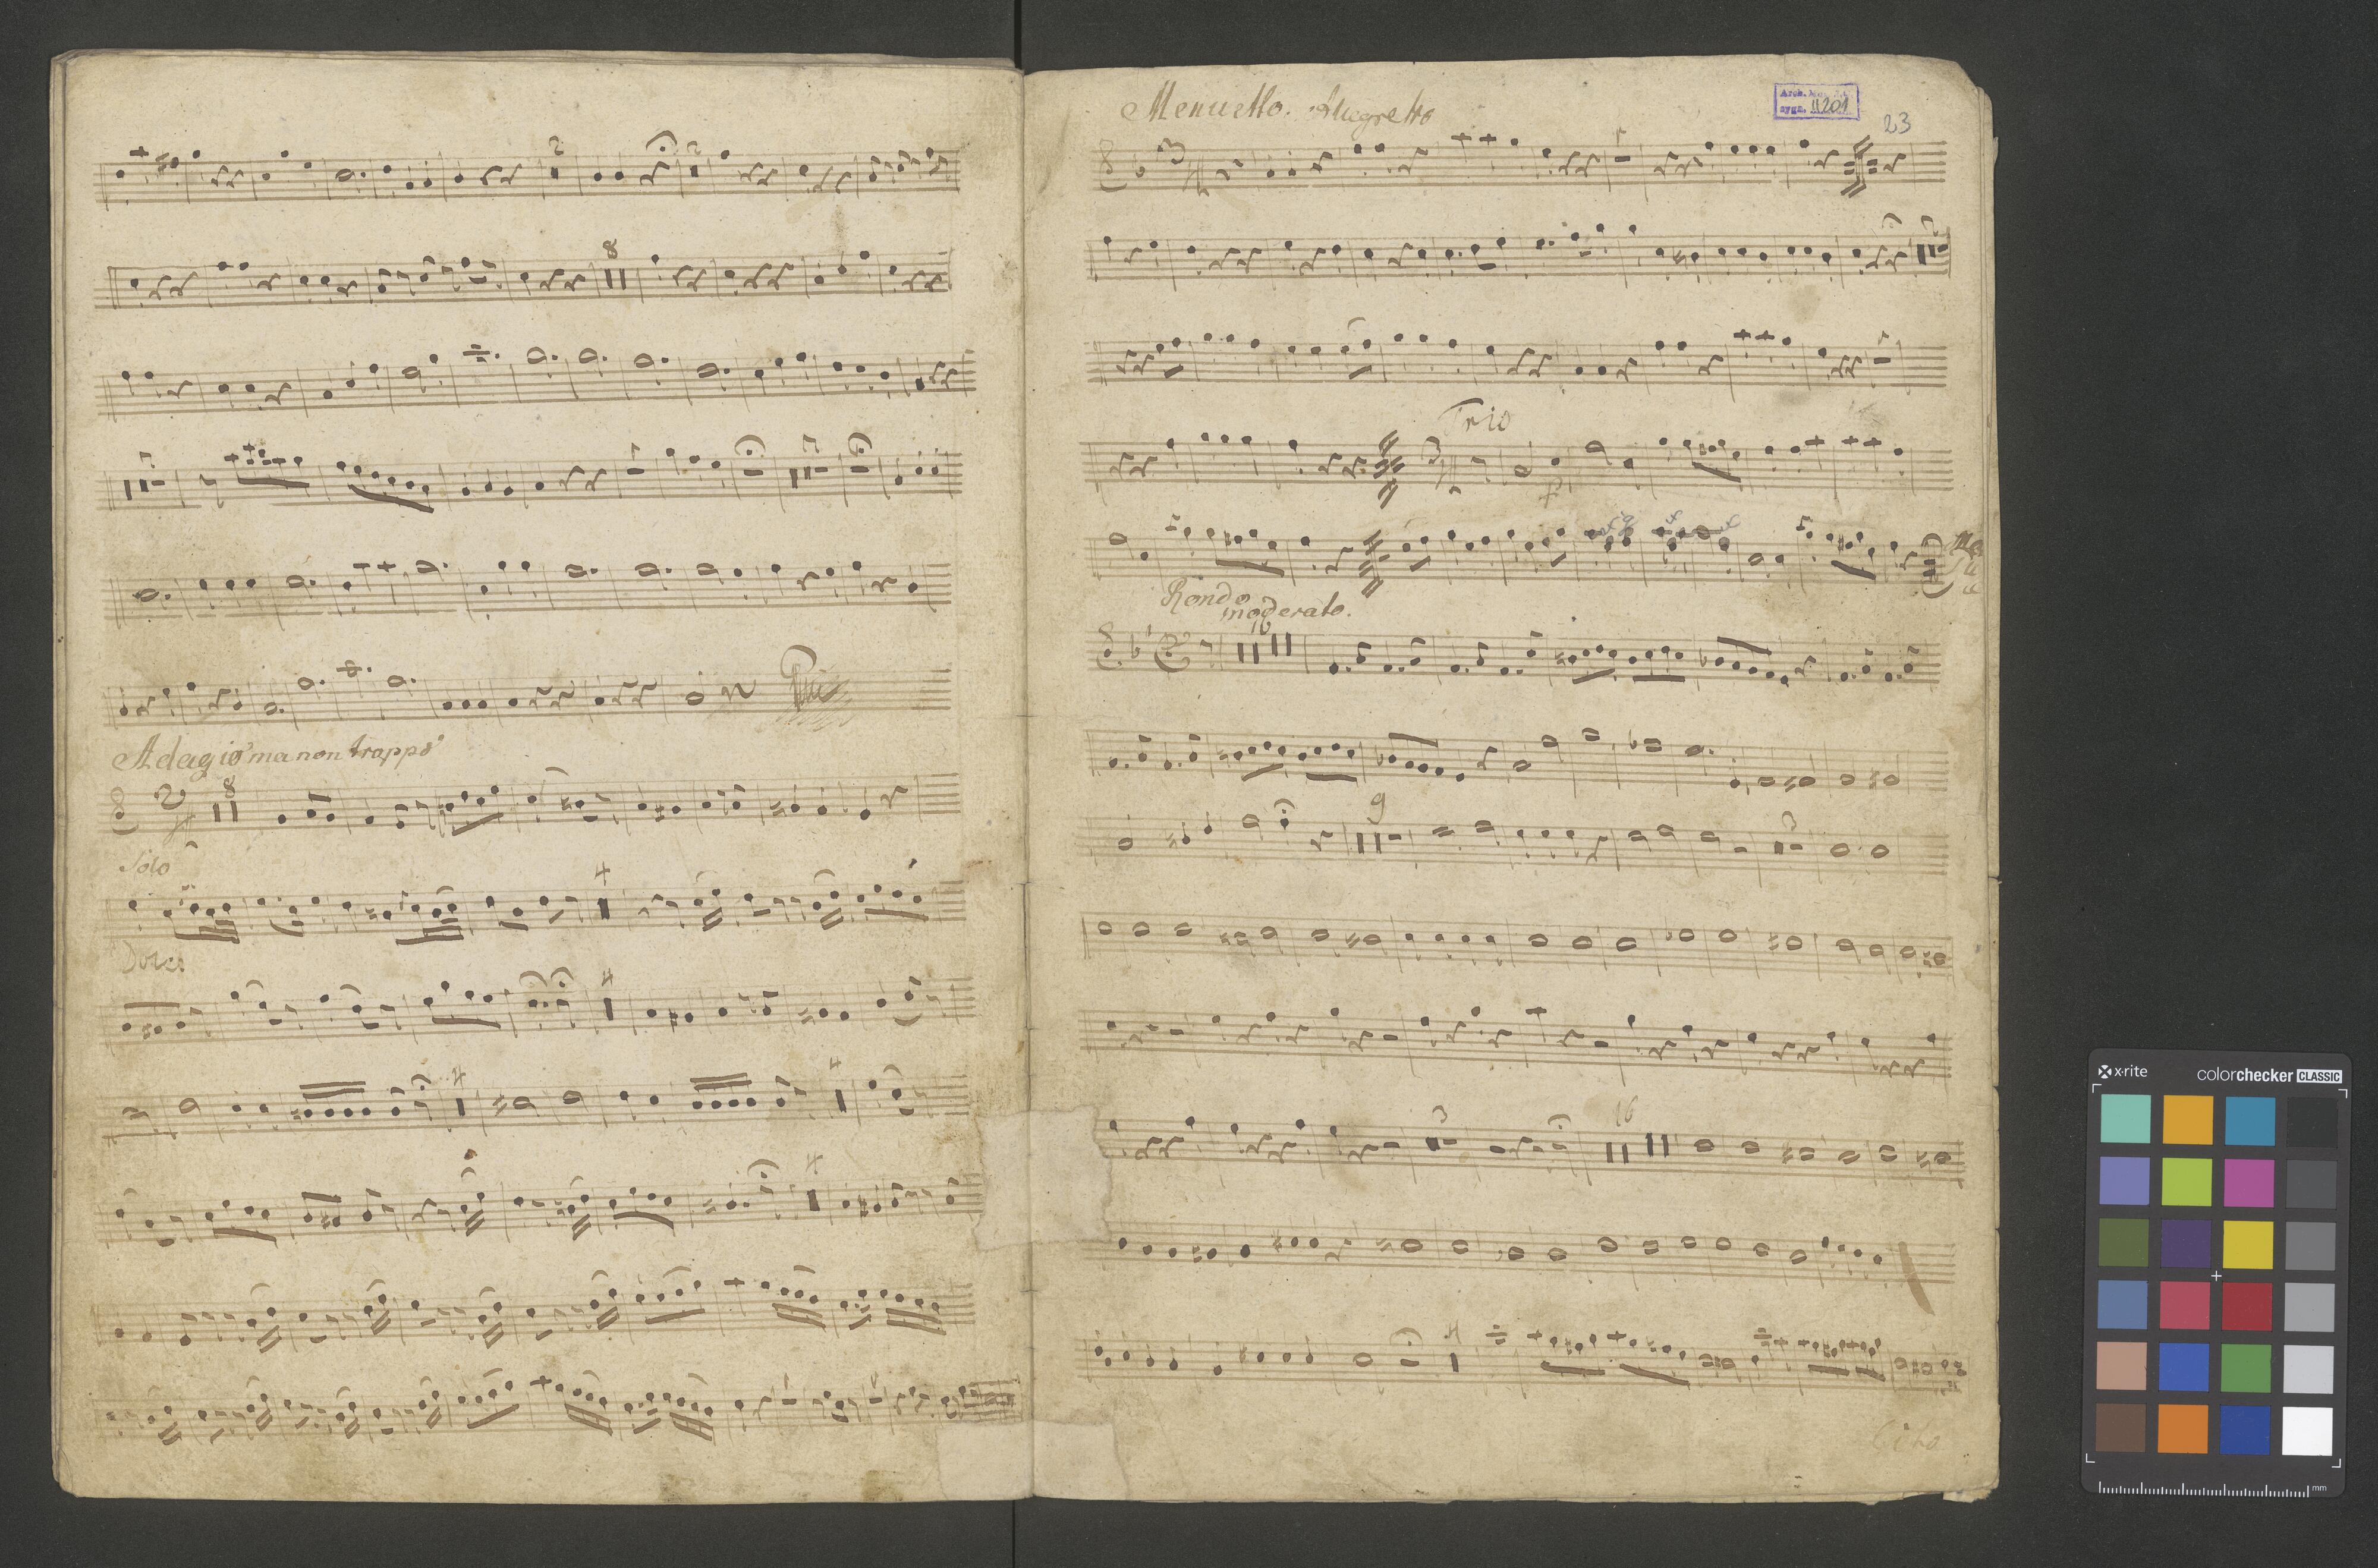 2
2
8
Adagio ma non troppo
2
8
Solo
4
Dolce
4
4
4
4
Menuetto. Allegretto
Arch.
sygn. II 201
23
3
Trio
3
Rondo
moderato.
16
9
3
3
16
4
Cito
x-rite
colorchecker CLASSIC
mm